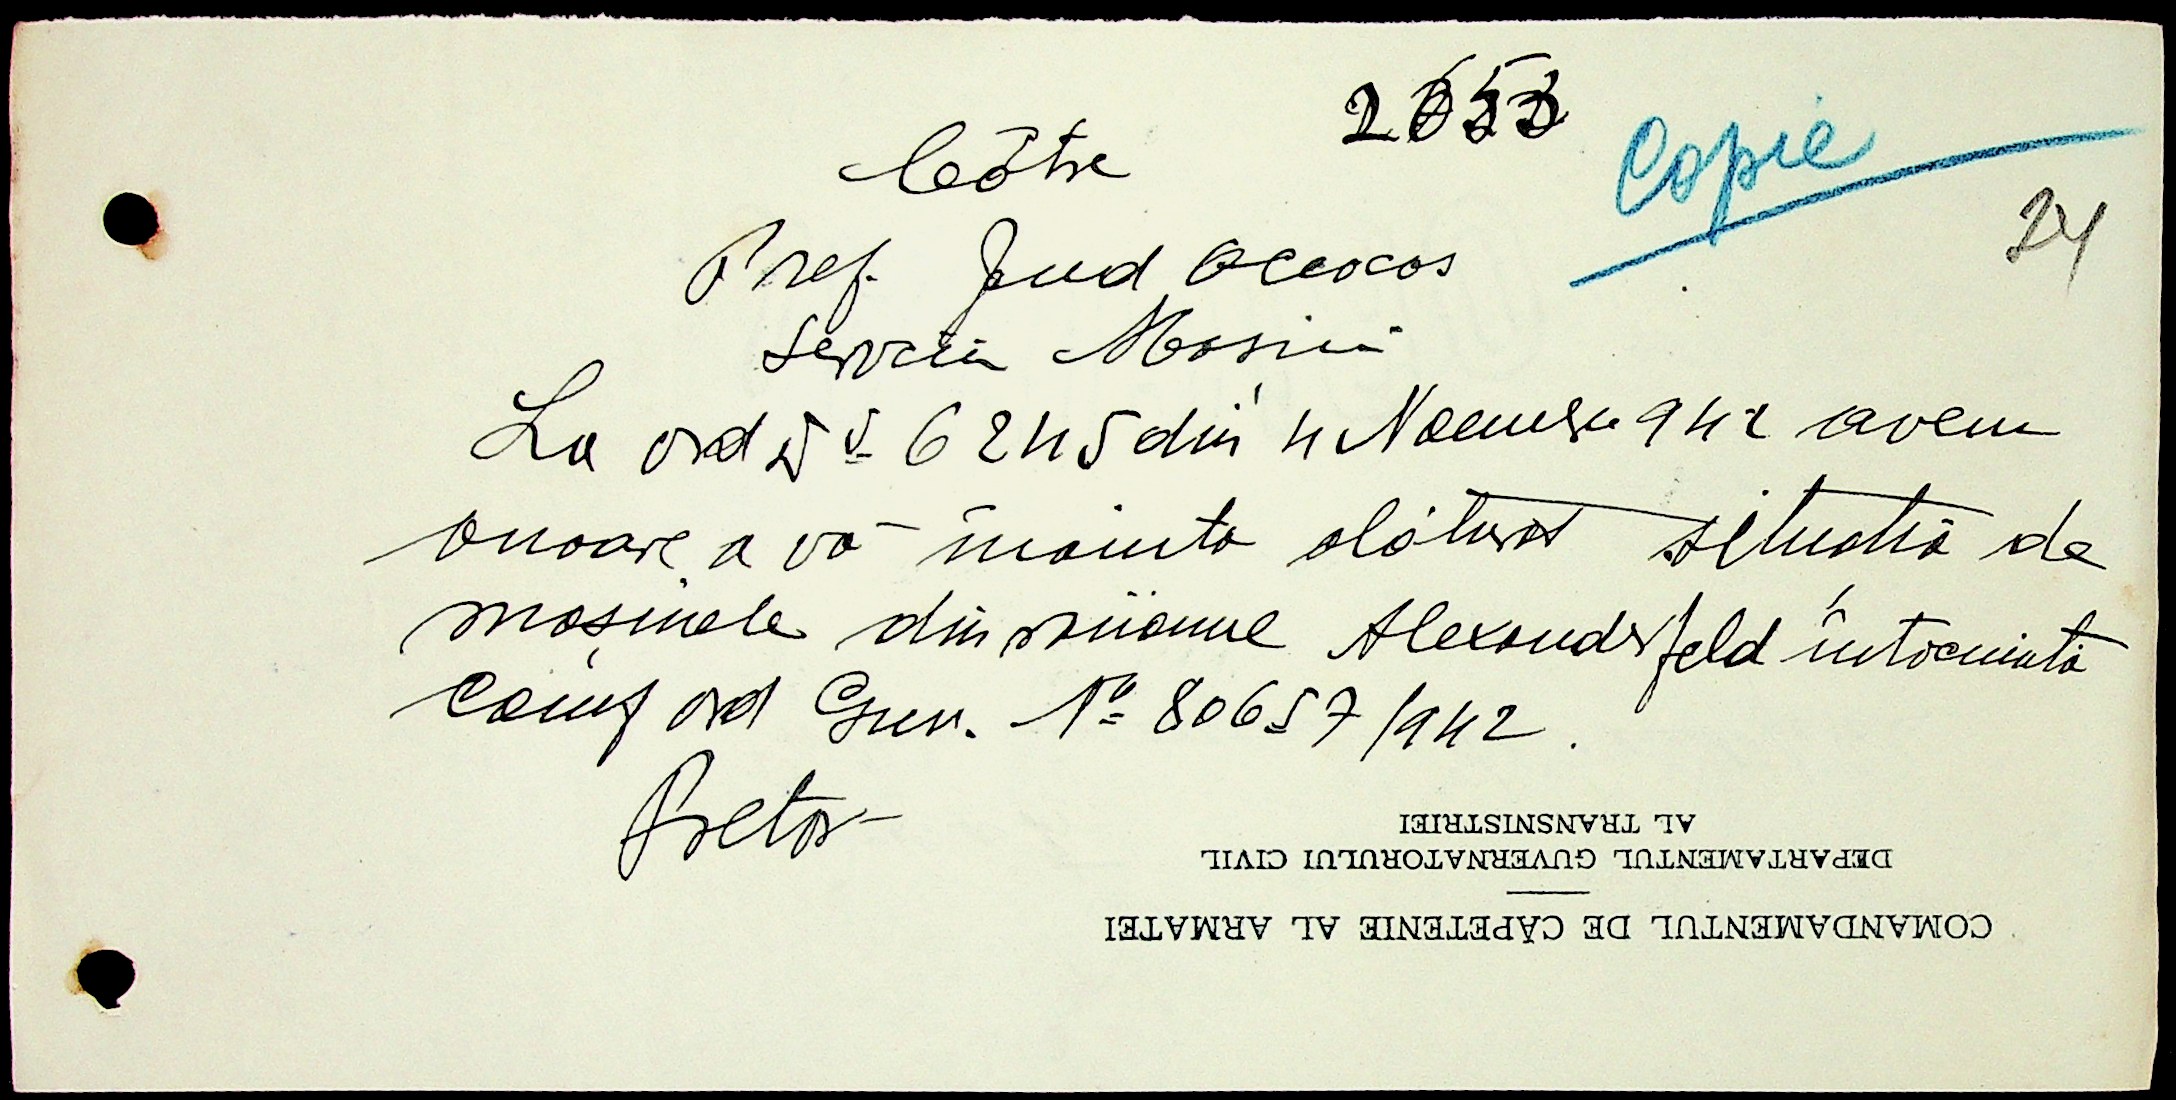 Copie
24
Către
Pref. Jud Oceacov
Serviciu Masini
La ord No 6245 din 4 Noembre 942 avem
onoare a vă inainta alăturat situatia de
mașinele din raionul Alexanderfeld întocmită
conf ord Guv. No 80657/942.
Pretor
AL TRANSNISTRIEI
DEPARTAMENTUL GUVERNATORULUI CIVIL
COMANDAMENTUL DE CĂPETENIE AL ARMATEI